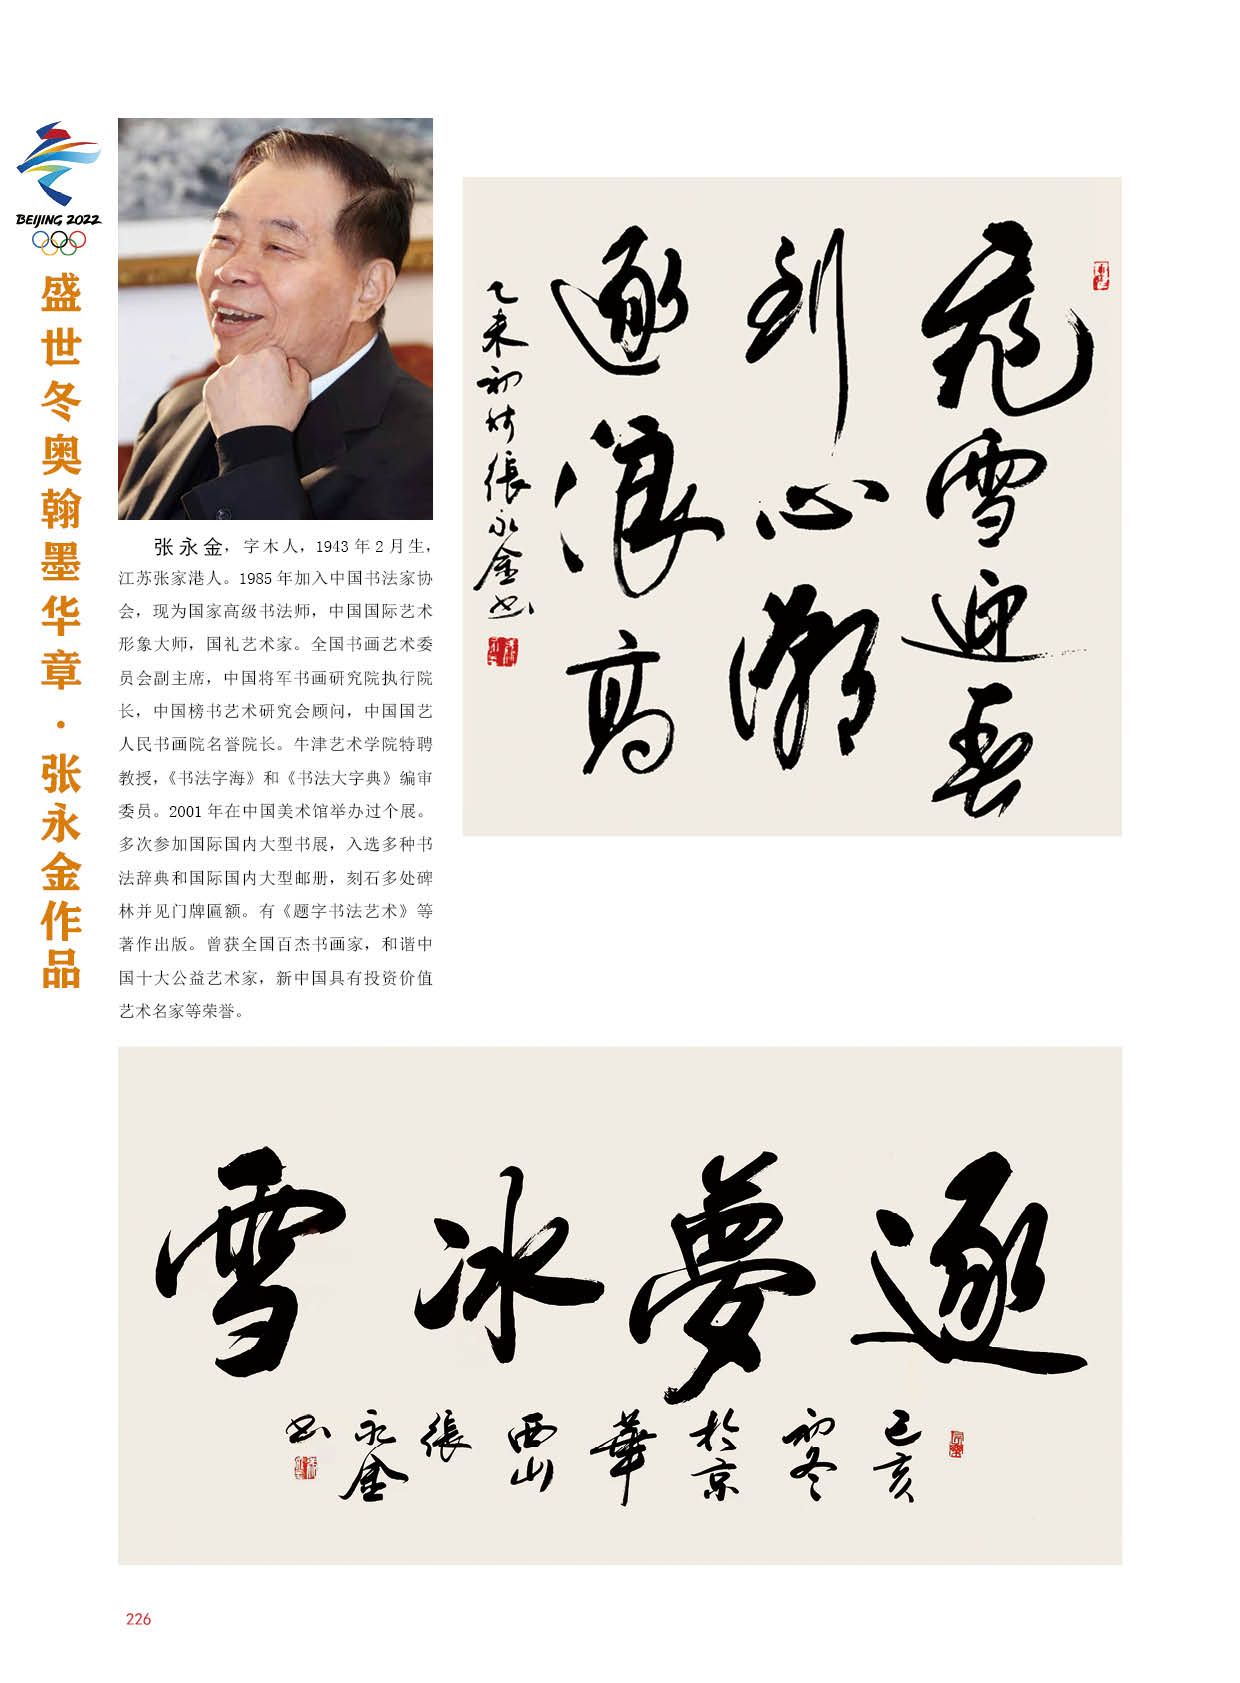 BEIJING 2022
盛世冬奥翰墨华章·张永金作品
张永金，字木人，1943年2月生，
江苏张家港人。1985年加入中国书法家协
会，现为国家高级书法师，中国国际艺术
形象大师，国礼艺术家。全国书画艺术委
员会副主席，中国将军书画研究院执行院
长，中国榜书艺术研究会顾问，中国国艺
人民书画院名誉院长。牛津艺术学院特聘
教授，《书法字海》和《书法大字典》编审
委员。2001年在中国美术馆举办过个展。
多次参加国际国内大型书展，入选多种书
法辞典和国际国内大型邮册，刻石多处碑
林并见门牌匾额。有《题字书法艺术》等
著作出版。曾获全国百杰书画家，和谐中
国十大公益艺术家，新中国具有投资价值
艺术名家等荣誉。
飛雪迎春
到心潮
逐浪高
乙未初時張永金书
逐夢冰雪
己亥
初冬
於京
華
西山
張
永金
书
226